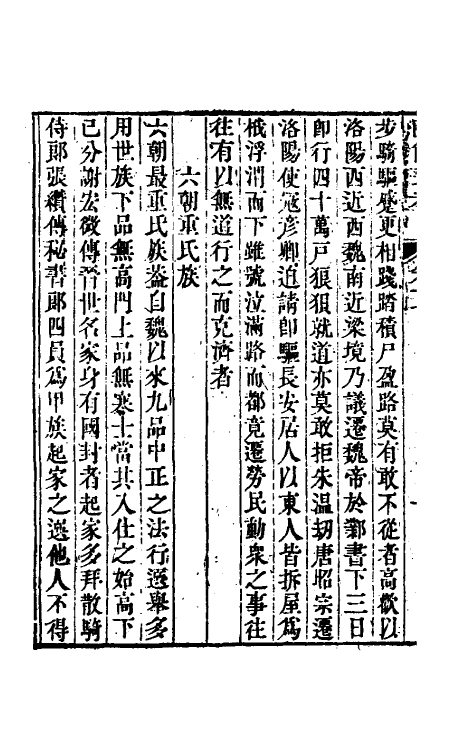 步騎驅蹙更相踐踏積尸盈路莫有敢不從者高歡以
洛陽西近西魏南近梁境乃議遷魏帝於鄴書下三日
卽行四十萬戸狼狽就道亦莫敢拒朱温刼唐昭宗遷
洛陽使宼彦卿迫請卽驅長安居人以東人皆拆屋爲
栰浮渭而下雖號泣滿路而都竟遷勞民動衆之事往
往有以無道行之而克濟者
六朝重氏族
六朝最重氏族葢自魏以來九品中正之法行選舉多
用世族下品無高門上品無寒士當其入仕之始高下
已分謝宏微傳晉世名家身有國封者起家多拜散騎
侍郎張纘傳秘書郎四員爲甲族起家之選他人不得